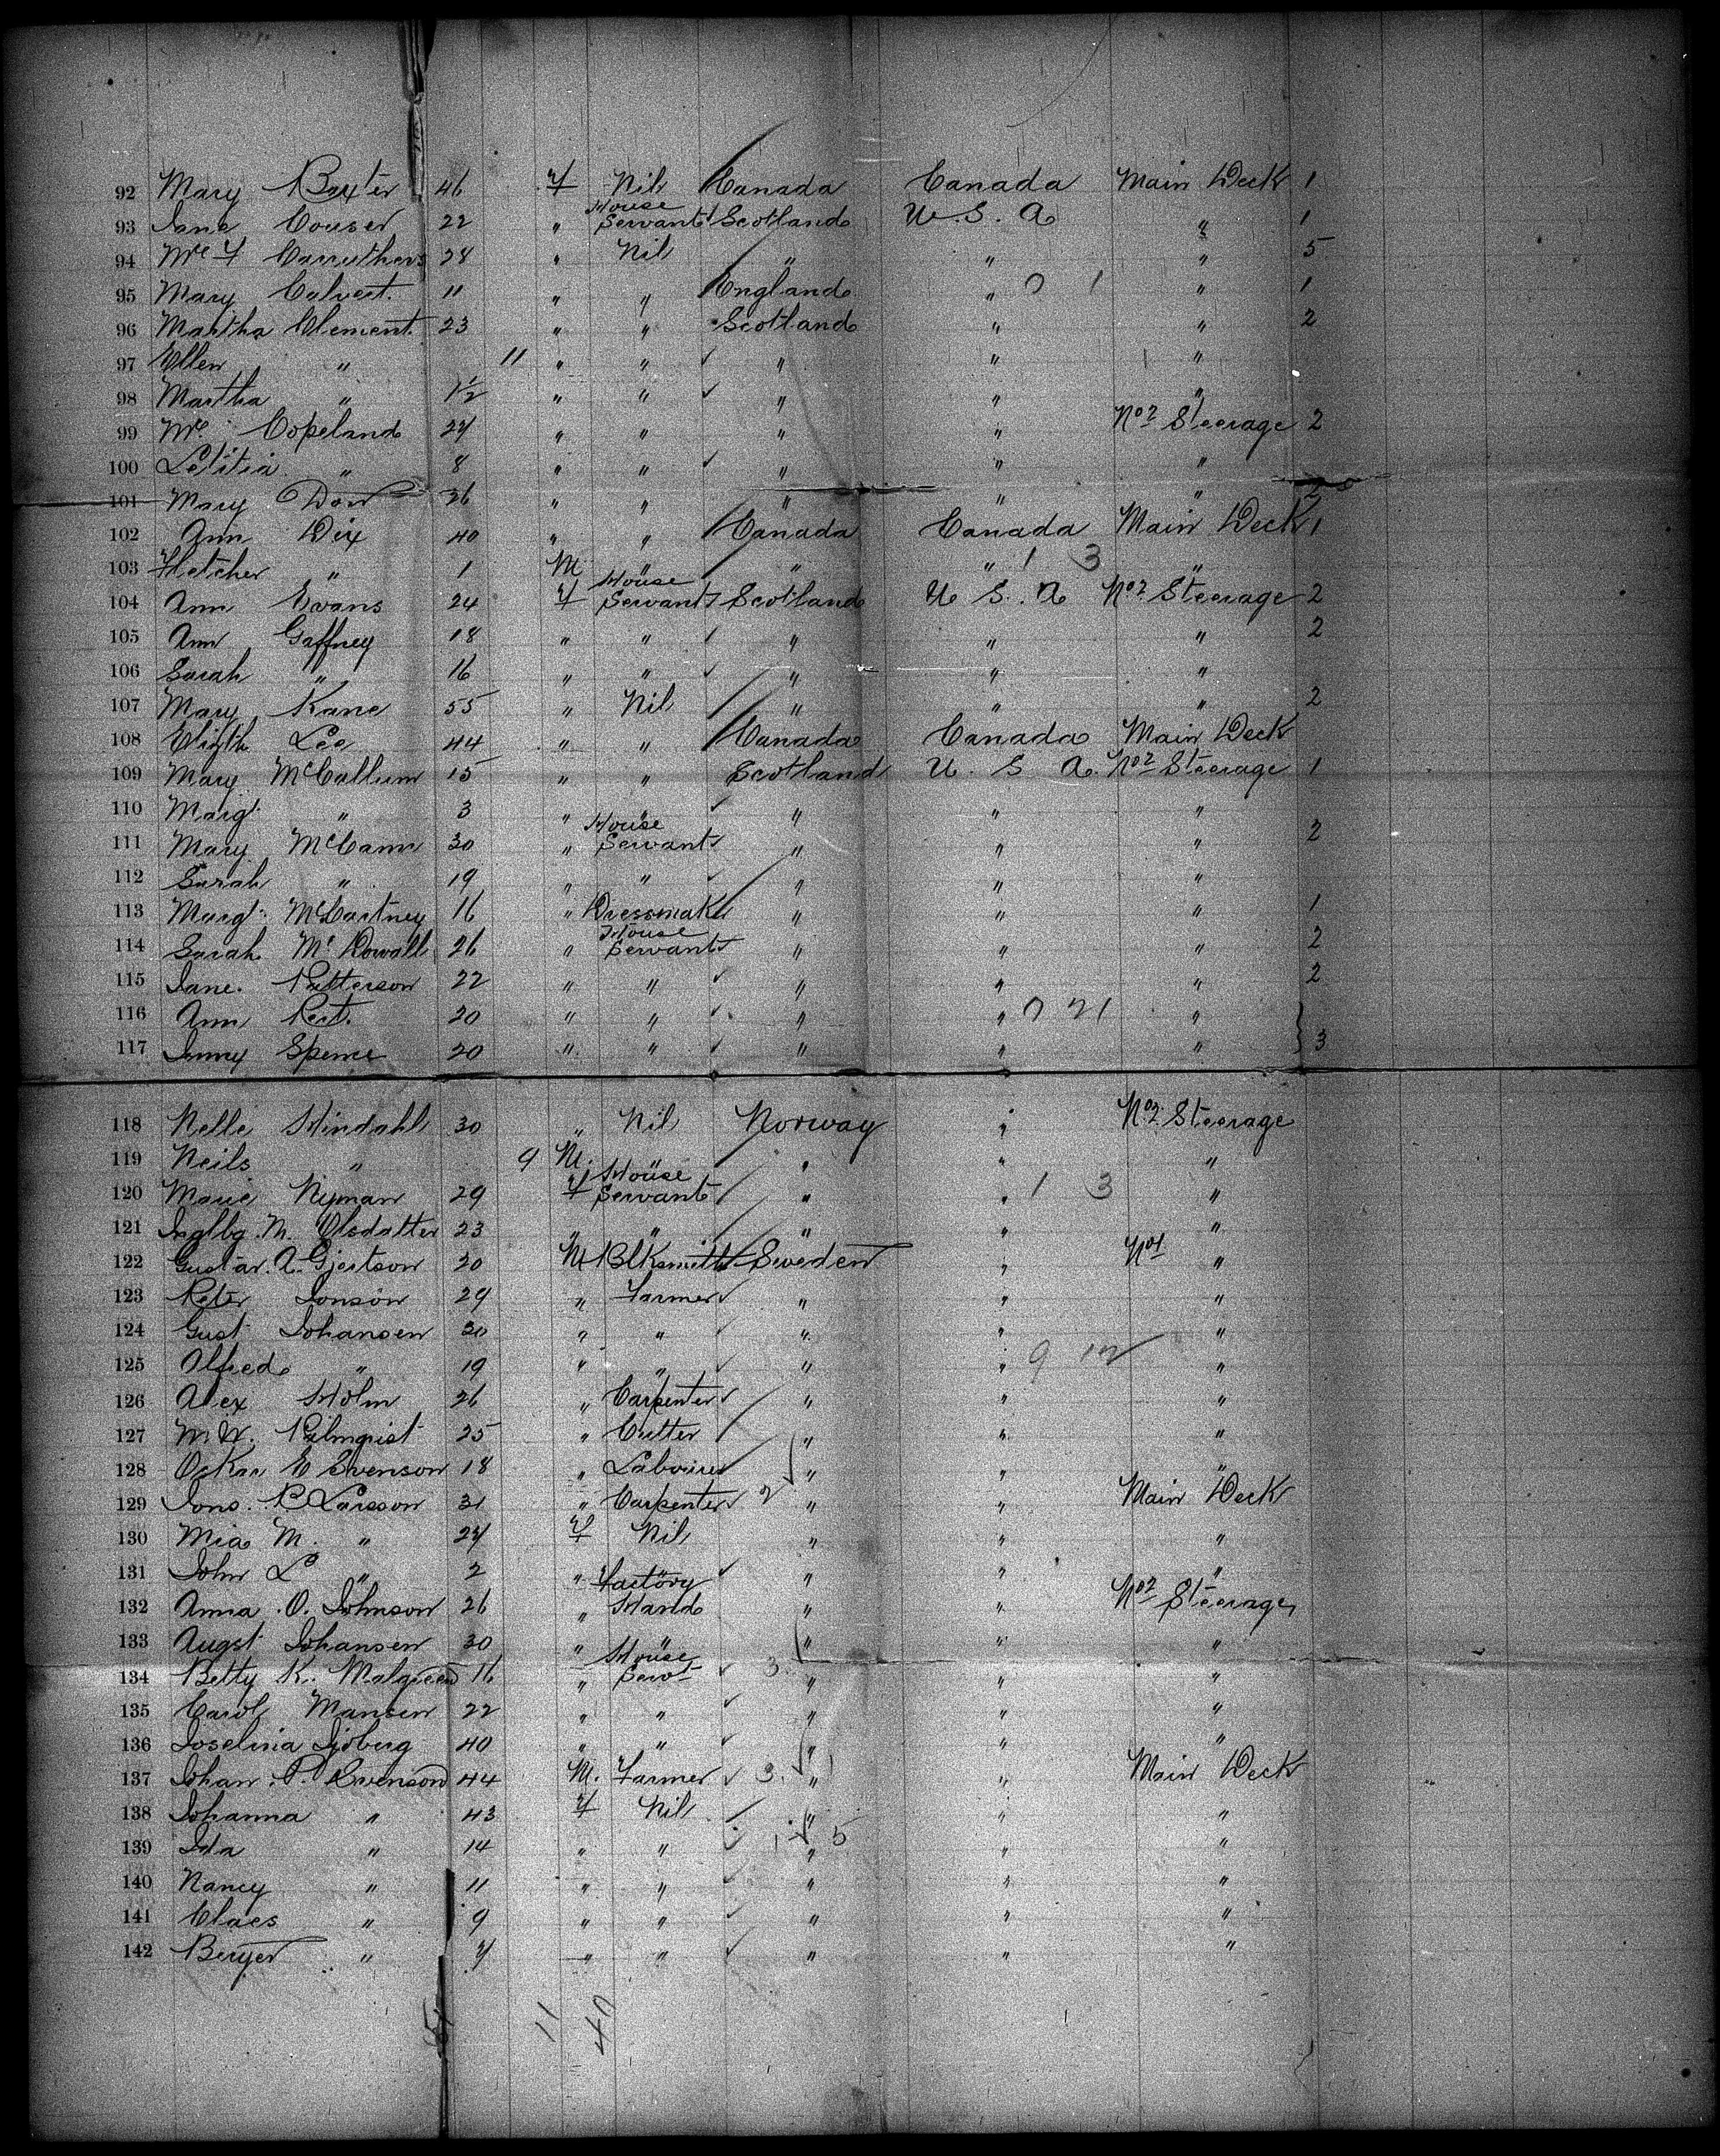 92 Mary Baxter 46 F Nil Canada Canada Main Deck 1
93 Jane Couser 22 " House Servant Scotland U.S.A " 1
94 Mrs F Carruthers 28 " Nil " " " 5
95 Mary Calvert. 11 " " England " " 1
96 Martha Clement 23 " " Scotland " " 2
97 Ellen " 11 " " " " "
98 Martha " 1½ " " " " "
99 Mrs Copeland 24 " " " " No 2 Steerage 2
100 Letitia " 8 " " " " "
101 Mary Dow 36 " " " " " 2
102 Ann Dix 40 " " Canada Canada Main Deck 1
103 Fletcher " 1 M " " " 1 3 "
104 Ann Evans 24 F House Servant Scotland U S. A No 2 Steerage 2
105 Ann Gaffney 18 " " " " " 2
106 Sarah " 16 " " " " "
107 Mary Kane 55 " Nil " " " 2
108 Elizth Lee 44 " " Canada Canada Main Deck
109 Mary McCallum 15 " " Scotland U. S A. No 2 Steerage 1
110 Margt " 3 " " " " "
111 Mary McCann 30 " House Servant " " " 2
112 Sarah " 19 " " " " "
113 Margt McCartney 16 " Dressmaker " " " 1
114 Sarah McDowall 26 " House Servant " " " 2
115 Jane. Patterson 22 " " " " " 2
116 Ann 20 " " " " "
117 Jenny Spence 20 " " " " " 3
118 Nelle Hindahl 30 " Nil Norway " No 2 Steerage
119 Neils " 9 M. " " " "
120 Marie Nyman 29 F House Servant " " 1 3 "
121 M. Olsdatter 23 " " " " "
122 Gustav. A. Gjertson 20 M Blksmith Sweden " No 1 "
123 Peter Jonson 29 " Farmer " " "
124 Gust Johansen 30 " " " " "
125 Alfred " 19 " " " " 9 12 "
126 Alex Holm 26 " Carpenter " " "
127 M.W. Palmqvist 25 " Cutter " " "
128 Oskar E Svenson 18 " Labourer " " "
129 Jons. P Larsson 31 " Carpenter 2 " " Main Deck
130 Mia M. " 24 F Nil " " "
131 John L " 2 " " " " "
132 Anna. O. Johnson 26 " Factory Hand " " No 2 Steerage
133 Augst Johansen 30 " " " " "
134 Betty K. 16 " House Servt 3 " " "
135 Carol Mansen 22 " " " " "
136 Joselina Sjoberg 40 " " " " "
137 Johan. P. Svenson 44 M. Farmer 3 " " Main Deck
138 Johanna " 43 F Nil " " "
139 Ida " 14 " " 1 5 " " "
140 Nancy " 11 " " " " "
141 Claes " 9 " " " " "
142 Berger " 7 " " " " "
11 40